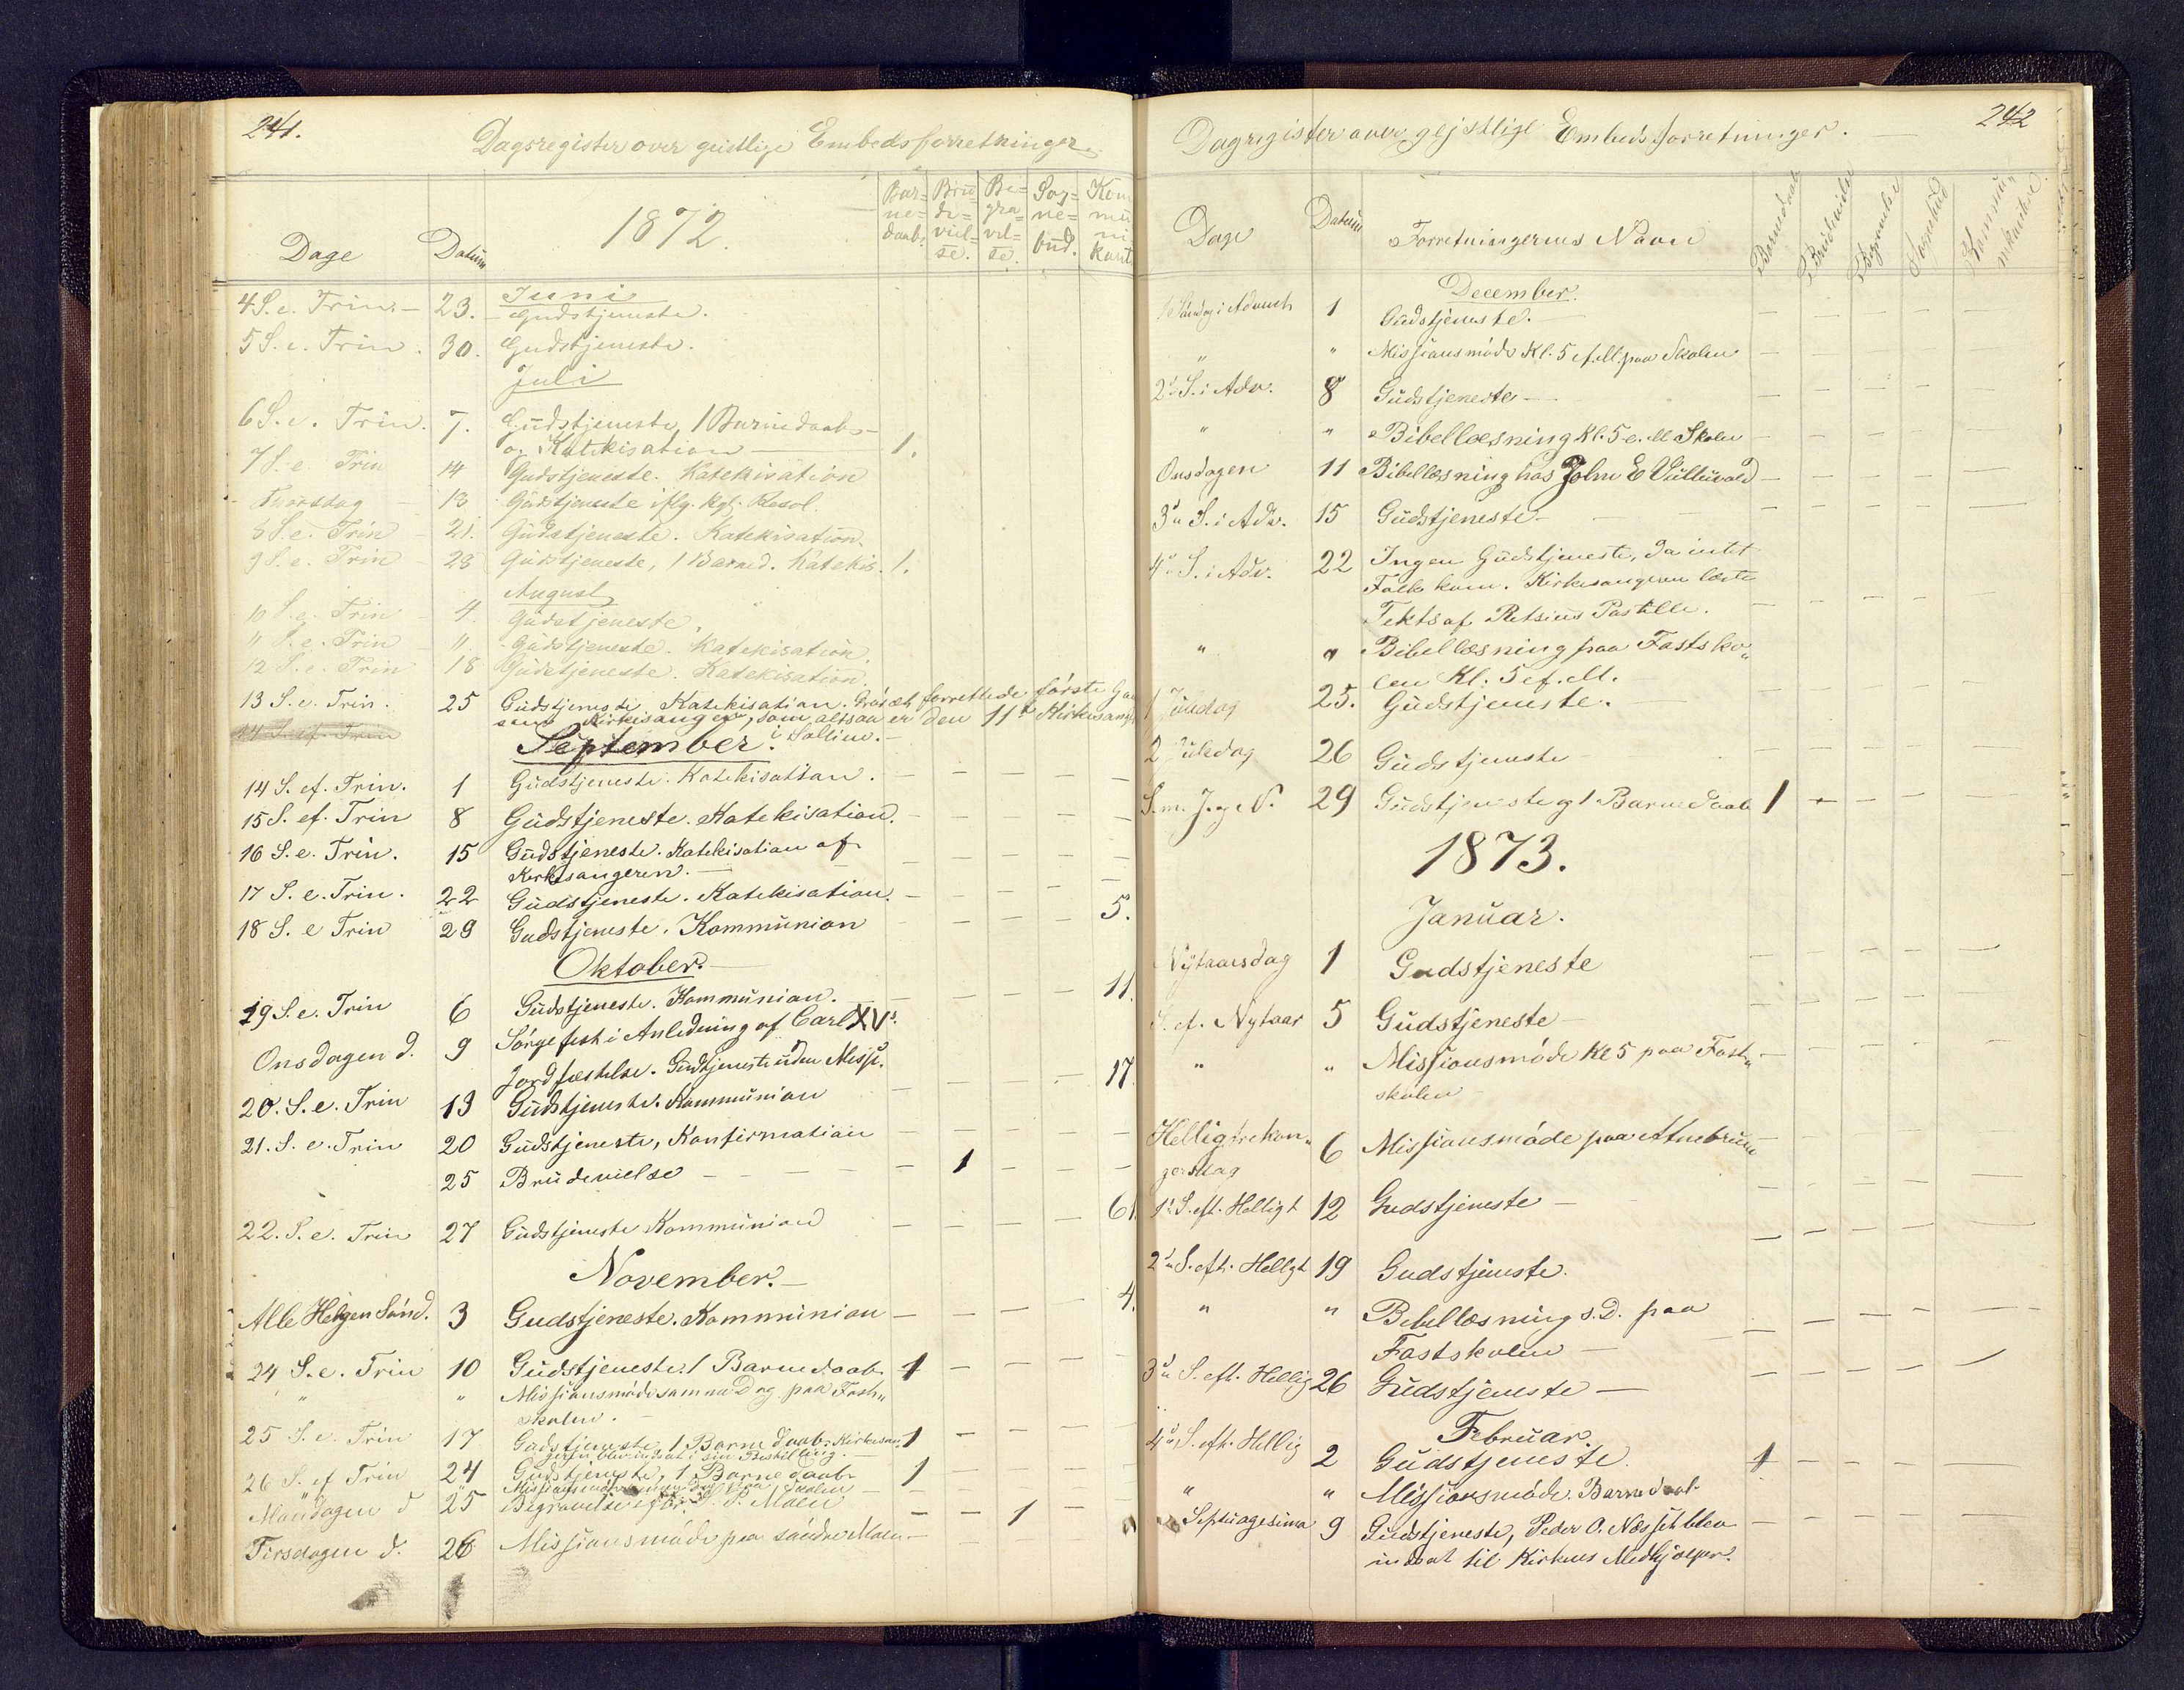 241.
Dagsregister over geistlige Embedsforretninger.
Dage Datum 1872. Bar=ne=daab. Brü=de=viel=se. Be=gra=vel=se. Sog=ne=bud. Kommunikant
Juni
4 S. e. Trin. — 23. Gudstjeneste.
5 S. e. Trin. 30. Gudstjeneste.
Juli
6 S. e. Trin. 7. Gudstjeneste, 1 Barnedaab
og Katekisation — 1.
7 S. e. Trin 14 Gudstjeneste. Katekisation
Thorsdag — 18 Gudstjeneste iflg. kgl. Resol.
8 S. e. Trin — 21. Gudstjeneste. Katekisation.
9 S. e. Trin — 28 Gudstjeneste, 1 Barned. Katekis. 1.
August
10 S. e. Trin 4. Gudstjeneste.
11 S. e. Trin — 11 Gudstjeneste. Katekisation.
12 S. e. Trin 18 Gudstjeneste. Katekisation.
13 S. e. Trin. 25 Gudstjeneste. Katekisation. forrettede første
som Kirkesanger, som altsaa er den 11te
14 S. ef. Trin
September. i Sollien.
14 S. ef. Trin. 1 Gudstjeneste. Katekisation. — — — — —
15 S. ef. Trin 8 Gudstjeneste. Katekisation. — — — — —
16 S. e. Trin. 15 Gudstjeneste. Katekisation af
Kirkesangeren. — — — — — —
17 S. e. Trin. 22 Gudstjeneste. Katekisation. — — — — —
18 S. e Trin 29 Gudstjeneste. Kommunion — — — — 5.
Oktober. —
19 S. e. Trin 6 Gudstjeneste. Kommunion. — — — — 11.
Onsdagen d. 9 Sørgefest i Anledning af Carl XVs
Jordfæstelse. Gudstjeneste uden Messe.
20. S. e. Trin 13 Gudstjeneste. Kommunion — — — — 17
21. S. e. Trin 20 Gudstjeneste, Konfirmation — — — — —
25 Brudevielse — — 1 — — —
22. S. e. Trin 27 Gudstjeneste Kommunion — — — — 61.
November. —
Alle Helgen Sønd. 3 Gudstjeneste. Kommunion — — — — 4.
24 S. e. Trin 10 Gudstjeneste. 1 Barnedaab. 1 — — — —
" " Missionsmøde samme Dag paa Fast„
skolen. —
25 S. e. Trin 17 Gudstjeneste, 1 Barnedaab. Kirkesan 1 — — — —
geren blev indsat i sin Bestilling —
26 S. ef Trin 24 Gudstjeneste, 1 Barnedaab 1 — — — —
Mandagen d 25 Begravelse Moen — — 1 — —
Tirsdagen d. 26 Missionsmøde paa søndre Moen —
242
Dagregister over gejstlige Embedsforretninger. —
Dage Datum Forretningernes Navn Barnedaab Brudevielse Begravelse Sognebud Kommunikanter
December.
1 Søndag i Advent 1 Gudstjeneste. — — — — — —
" " Missionsmøde Kl. 5 ef. M. paa Skolen —
2d S. i Adv. 8 Gudstjeneste — — — — — —
" " Bibellæsning Kl. 5 e. M Skolen — — — — —
Onsdagen 11 Bibellæsning hos John E — — — — —
3die S. i Adv. 15 Gudstjeneste — — — — — —
4de S. i Adv. 22 Ingen Gudstjeneste, da intet
Folk kom. Kirkesangeren læste
Tekts af Postille. — — — — —
" " Bibellæsning paa Fastsko„
len Kl. 5 ef. M.
1 Juledag 25. Gudstjeneste. — — — — — —
2 Juledag 26 Gudstjeneste — — — — — —
S. m. J. og N. 29 Gudstjeneste og 1 Barnedaab 1 — — — —
1873.
Januar.
Nytaarsdag 1 Gudstjeneste — — — — —
S. ef. Nytaar 5 Gudstjeneste — — — — — —
" " Missionsmøde Kl 5 paa Fast„ — — — — —
skolen —
Helligtrekon„ 6 Missionsmøde paa Atnebruen — — — — —
gersdag
1te S. eft. Helligt 12 Gudstjeneste — — — — — —
2den S. eft. Helligt 19 Gudstjeneste. — — — — —
" " Bibellæsning s. D. paa
Fastskolen — — — — — —
3die S. eft. Hellig 26 Gudstjeneste — — — — — —
Februar.
4de S. eft. Hellig 2 Gudstjeneste. 1 — — — —
" " Missionsmøde. Barnedaab.
Septuagesima 9 Gudstjeneste, Peder O. Næsset blev — — — — —
indsat til Kirkens Medhjælper.